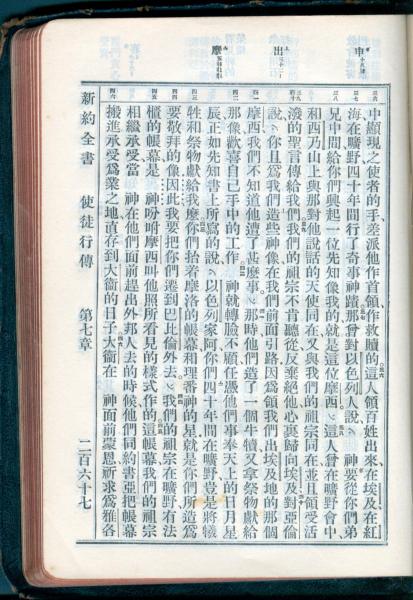 申
出
摩
三六
三七
三八
三九
四十
四一
四二
四三
四四
四五
四六
中顯現之使者的手差派他作首領作救贖的這人領百姓出來在埃及在紅
海在曠野四十年間行了奇事神蹟那曾對以色列人說、神要從你們弟
兄中間給你們興起一位先知像我的就是這位摩西。這人曾在曠野會中
和西乃山上與那對他說話的天使同在又與我們的祖宗同在並且領受活
潑的聖言傳給我們我們的祖宗不肯聽從反棄絕他心裏歸向埃及對亞倫
說、你且爲我們造些神像在我們前面引路因爲領我們出埃及地的那個
摩西我們不知道他遭了甚麼事。那時他們造了一個牛犢又拿祭物獻給
那像歡喜自己手中的工作 神就轉臉不顧任憑他們事奉天上的日月星
辰正如先知書上所寫的說、以色列家阿你們四十年間在曠野豈是將犧
牲和祭物獻給我麼你們抬着摩洛的帳幕和理番神的星就是你們所造爲
要敬拜的像因此我要把你們遷到巴比倫外去。我們的祖宗在曠野有法
櫃的帳幕是 神吩咐摩西叫他照所看見的樣式作的這帳幕我們的祖宗
相繼承受當 神在他們面前趕出外邦人去的時候他們同約書亞把帳幕
搬進承受爲業之地直存到大衞的日子大衞在 神面前蒙恩祈求爲雅各
新約全書 使徒行傳 第七章 二百六十七